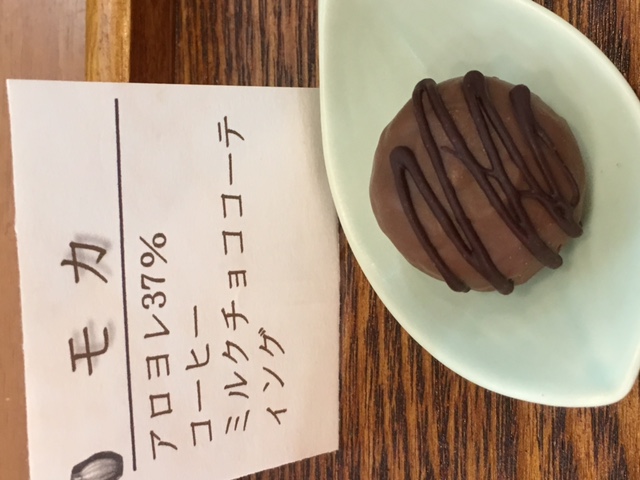 モカ
アロヨレ37%
コーヒー
ミルクチョココーテ
ィング